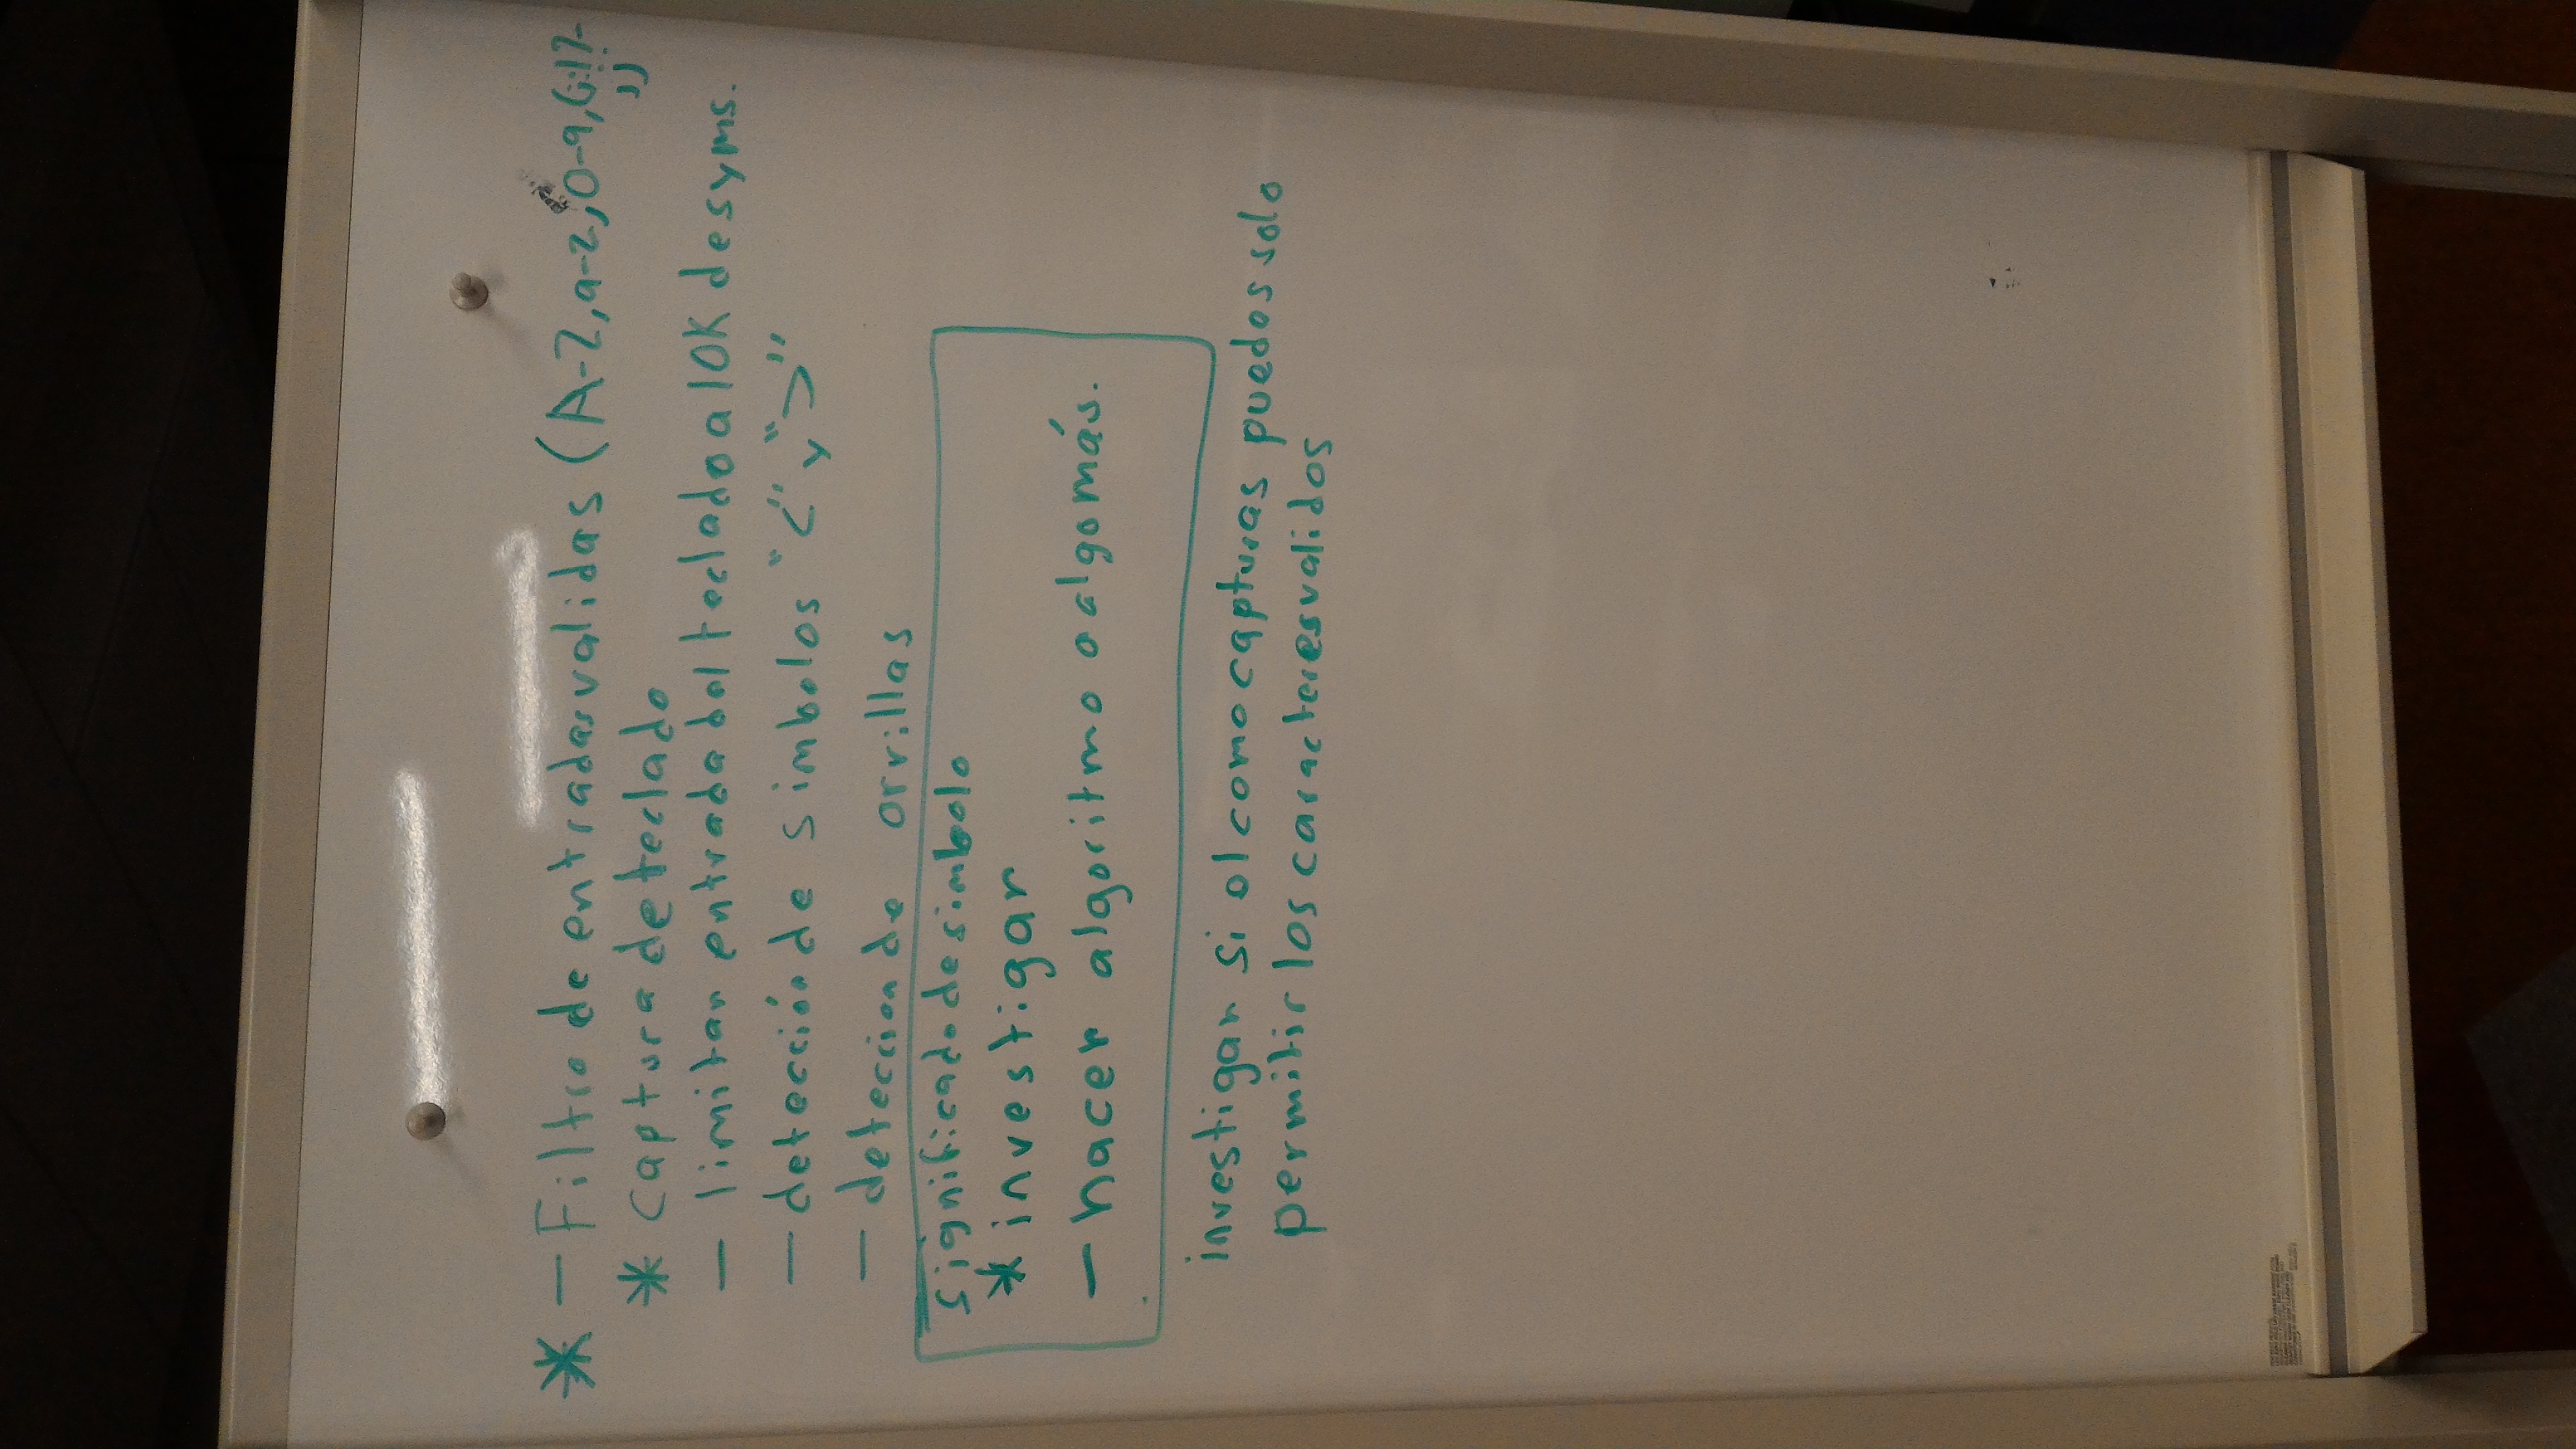 * - Filtro de entradas validas (A-Z, a-z, 0-9, (:!?-
,;
* captura de teclado
- limitar entrada del teclado a 10K de syms.
- detección de simbolos "<" y ">"
- deteccion de orrillas
significado de simbolo
* investigar
- hacer algoritmo o algo más.
investigar si el como capturas puedes solo
permitir los caracteres validos